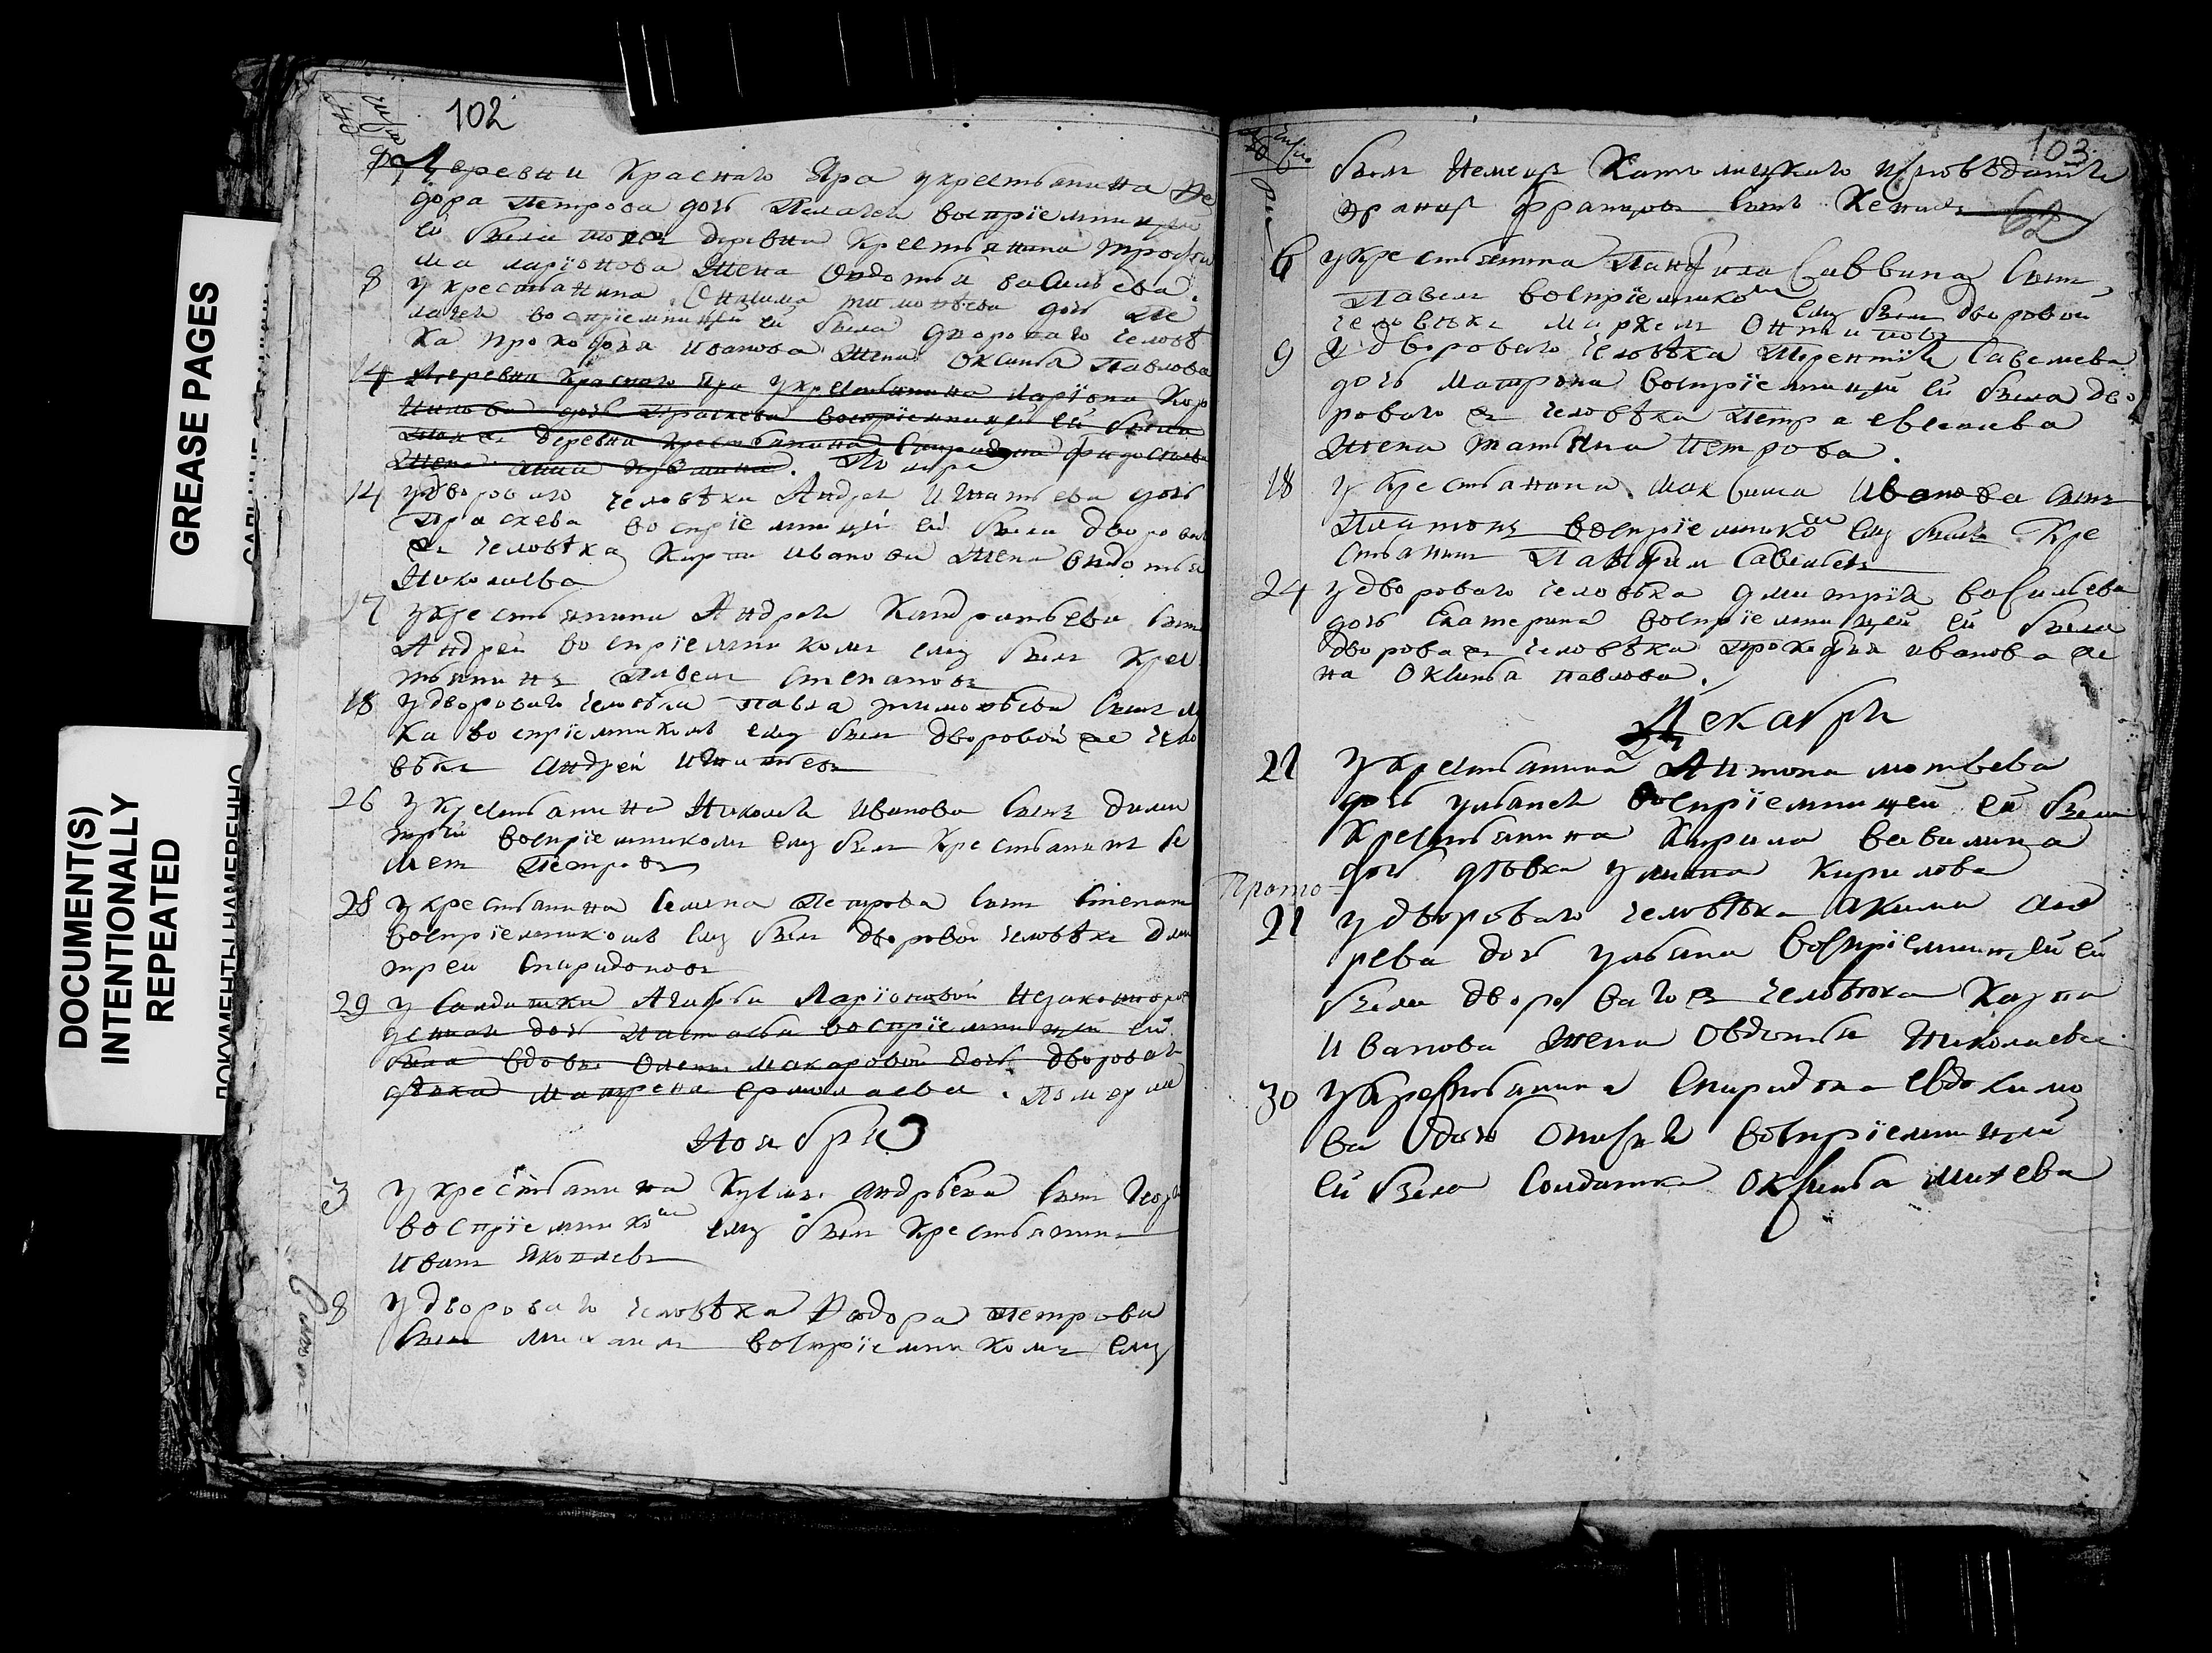 GREASE PAGES
DOCUMENT(S)
INTENTIONALLY
REPEATED
ДОКУМЕНТЫ НАМЕРЕННО
102
Деревни Краснаго Яра укрестьянина Фе
дора Петрова дочь Пелагея воспрїемницею
ей была тоя ж деревни крестьянина Трофи
ма Ларїонова жена Овдотья василъева
8 укрестьянина Онисима тимофѣева дочь Пе
лагея воспрїемницей ей была двороваго человѣ
ка Прокофья иванова жена оксинья Павлова
14 деревни краснаго яра укрестьянина ларїона Кор
нилова дочь Праскева воспрїемницей ей была
тоя ж деревни крестьянина Спиридона
жена анна. Помре
14 удвороваго человѣка Андрея Игнатьева дочь
Праскева воспрїемницей ей была двороваго
ж человѣка Карпа иванова жена Овдотья
Николаева
17 укрестьянина Андрея Кандратьева сынъ
Андрей воспрїемникомъ ему былъ крес
тьянинъ Павелъ Степановъ
18 удвороваго человѣка павла тимофѣева сынъ лу
ка воспрїемникомъ ему былъ дворовой же чело
вѣкъ андрей Игнатьевъ
26 укрестьянина Николая Иванова сынъ дими
трїй воспрїемникомъ ему былъ крестьянинъ се
менъ Петровъ
28 укрестьянина Семена Петрова сынъ Степанъ
воспрїемникомъ ему былъ дворовой человѣкъ дми
трей Спиридоновъ
29 у Салдатки Агафьи Ларїоновой незаконноро
жденная дочь Настасья воспрїемницей ей
была вдовы Олены макаровой дочь дворовая
дѣвка матрена ермолаева. Померла
Ноября
3 укрестьянина Кузмы андрѣева сынъ
воспрїемникомъ ему былъ крестьянинъ
иванъ Яковлевъ
8 удвороваго человѣка Федора петрова
сынъ михаилъ воспрїемникомъ ему
103
былъ Немецъ Католицкаго исповѣданїя
Францъ Францовъ сынъ
62
6 укрестьянина Панфила Саввина сынъ
Павелъ воспрїемникомъ ему былъ дворовой
человѣкъ маркелъ Онтиповъ
9 удвороваго человѣка Терентїя Савельева
дочь матрона воспрїемницей ей была дво
роваго ж человѣка петра евсеева
жена татьяна петрова.
18 укрестьянина максима Иванова сынъ
Платонъ воспрїемникомъ ему былъ кре
стьянинъ Панфилъ Савельевъ
24 удвороваго человѣка дмитрїя василъева
дочь екатерина воспрїемницей ей была
двороваго ж человѣка прокофья иванова же
на Оксинья павлова.
Декабря
21 укрестьянина Антона матвѣева
дочь ульянея воспрїемницей ей была
крестьянина Кирила вавилина
дочь дѣвка ульяна кирилова
Прото
21 удвороваго человѣка акима анд
рева дочь ульяна воспрїемницей ей
была двороваго ж человѣка Карпа
Иванова жена Овдотья Николаева
30 укрестьянина спиридона евдокимо
ва дочь Онисья воспрїемницей
ей была солдатка Оксинья михева